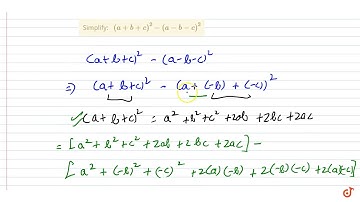 Simplify: (a + b + c)² − (a − b − c)²
(a+b+c)² - (a-b-c)²
⇒ (a+b+c)² - (a+ (-b) + (-c))²
✓ (a+b+c)² = a² + b² + c² + 2ab + 2bc + 2ac
= [a² + b² + c² + 2ab + 2bc + 2ac] -
[a² + (-b)² + (-c)² + 2(a)(-b) + 2(-b)(-c) + 2(a)(-c)]